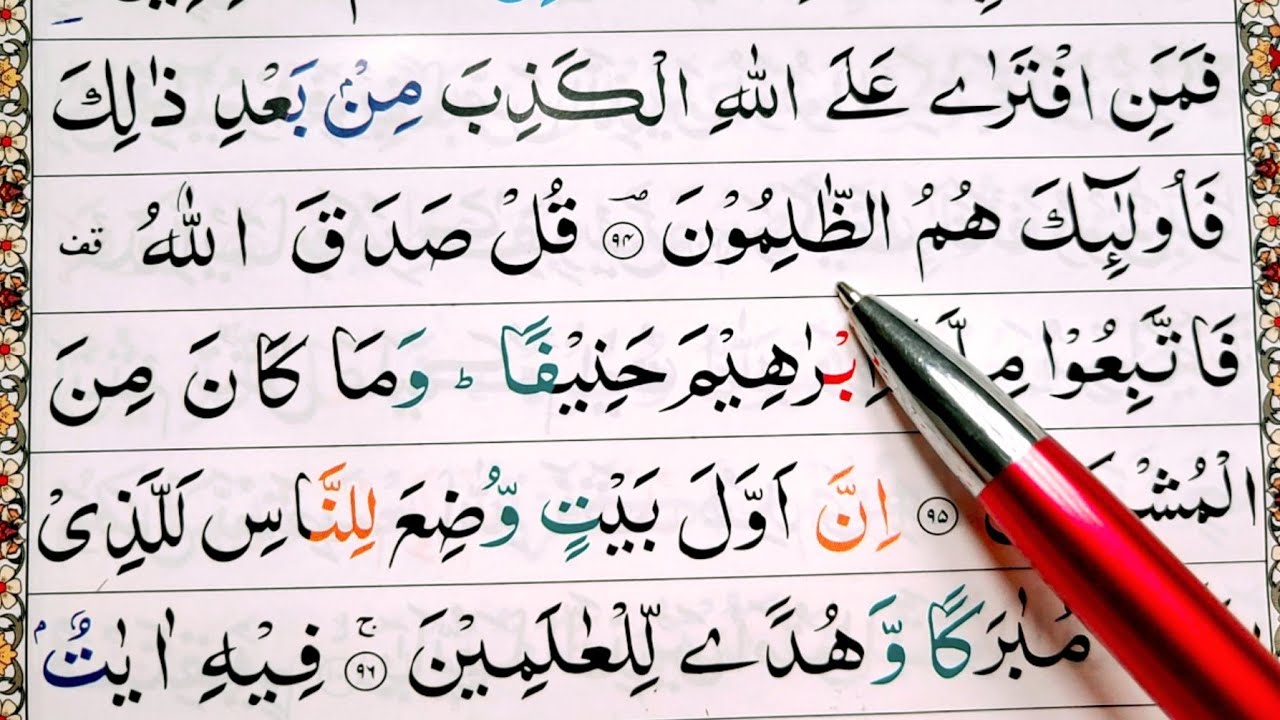 فَمَنِ افْتَرٰے عَلَے اللّٰهِ الْكَذِبَ مِنْۢ بَعْدِ ذٰلِكَ
فَاُولٰٓئِكَ هُمُ الظّٰلِمُوْنَ ۝۹۴ؔ قُلْ صَدَقَ اللّٰهُ قف
فَاتَّبِعُوْا اِبْرٰهِيْمَ حَنِيْفًا ؕ وَمَا كَانَ مِنَ
۝۹۵ اِنَّ اَوَّلَ بَيْتٍ وُّضِعَ لِلنَّاسِ لَلَّذِىْ
مُبٰرَكًا وَّ هُدًے لِّلْعٰلَمِيْنَ ۝۹۶ۚ فِيْهِ اٰيٰتٌۢ